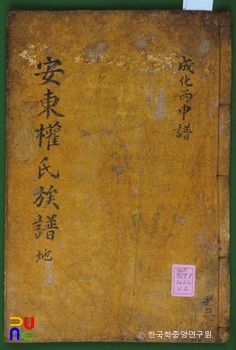 成化丙申譜
安東權氏族譜 地
共三
929.1
ⓒ 한국학중앙연구원